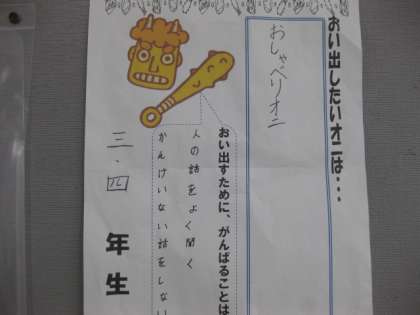 おい出したいオニは・・・
おしゃべりオニ
おい出すために、がんばることは
人の話をよく聞く
かんけいない話をしない
三・四年生